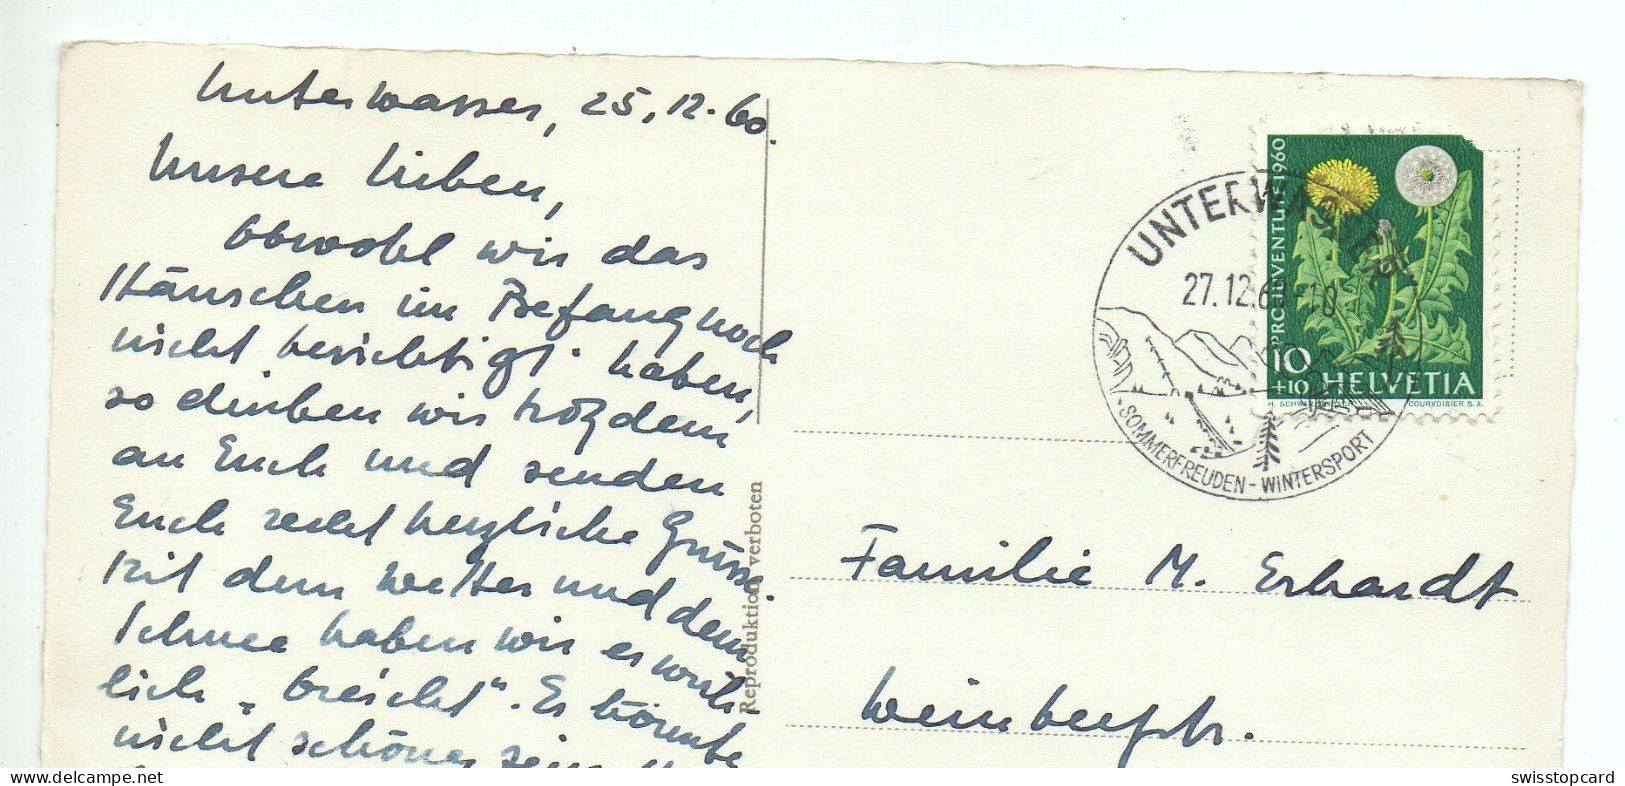 Unterwasser, 25.12.60.
Unsere Lieben,
Obwohl wir das
Häuschen im Befang noch
nicht besichtigt haben,
so denken wir trotzdem
an Euch und senden
Euch recht herzliche Grüsse.
Mit dem Wetter und dem
Schnee haben wir es wirk-
lich „breicht". Es könnte
nicht schöner sein
Reproduktion verboten
UNTERWASSER
27.12.60-10
SOMMERFREUDEN - WINTERSPORT
PRO JUVENTUTE 1960
10
+10 HELVETIA
COURVOISIER S.A.
Familie M. Erhardt
Weinbergstr.
swisstopcard